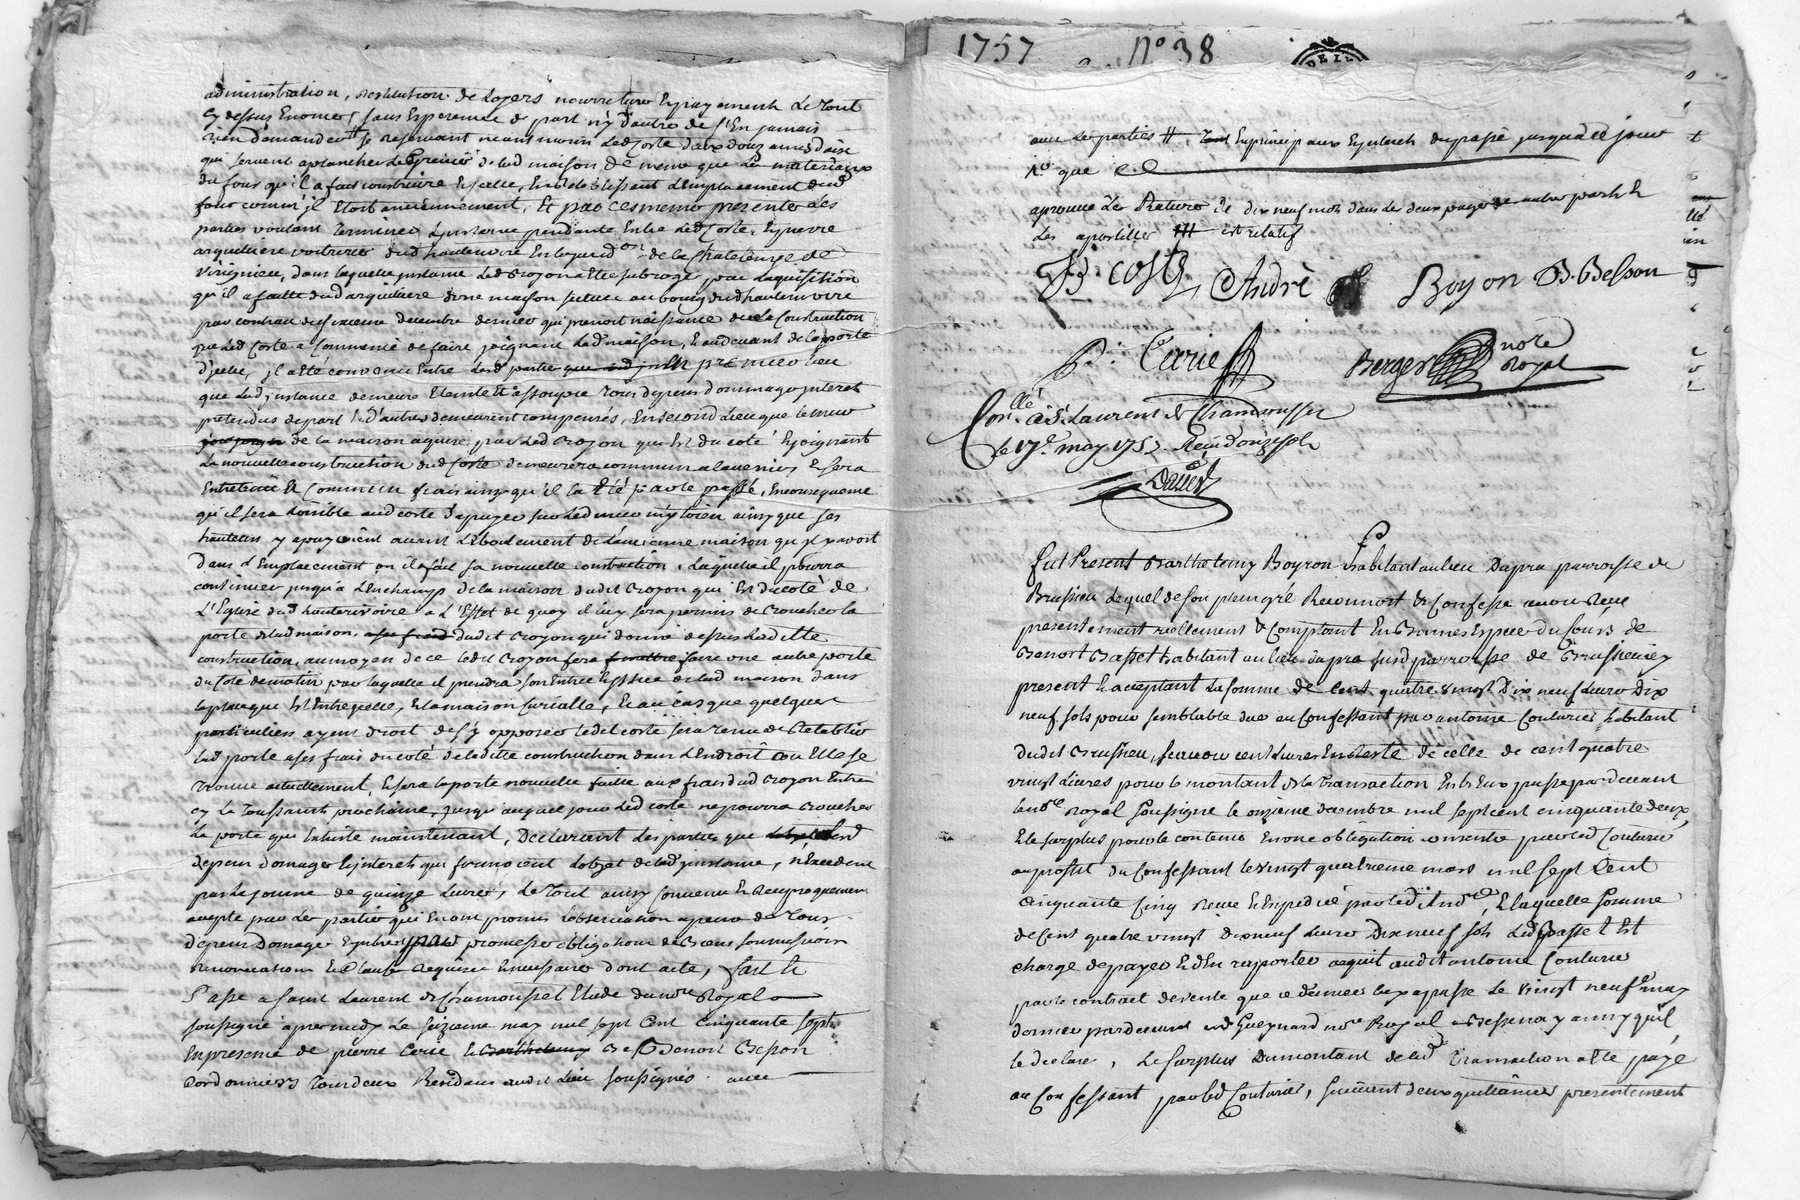 administration, restitution de loyers nourriture Epayement Le Tout
Cy dessus Enoncé, sans Esperence de part ny d'autre de s'En jamais
rien demander # se reservant neanmoins Led Coste deux douz aunes daix
qui servent aplancher Le Grenier de lad maison de meme que Les materiaux
du four qu'il a fait construire Enicelle, En Retablissant L'emplacement dud
four comm'jl Etoit anciennement, Et par ces memes presentes Les
parties voulant Terminer L'jnstance pendante Entre Led Coste, Epierre
arquilliere voiturier dud hauterivoire En la jurid.on de la Chatelenie de
Virignieu, dans laquelle jnstance Led Croyon a Eté subrogé, par Laquisition
qu'il a faitte dud arquilliere d'une maison scituée au bourg dud hauterivoire
par contract du sixieme decembre dernier qui prenoit naissance de la Construction
que Led Coste a Commencé de faire joignant Lad maison, Eaudevant de la porte
d'jcelle, jl a été convenu Entre Lesd parties En premier lieu
que Lad jnstance demeure Eteinte Et assoupie Tous depens dommages jnterets
pretendus de part Et D'autre demeurent compensés, En second Lieu que le mur
de la maison aquise par Led Croyon qui Est du coté Ejoignant
La nouvelle construction dud Coste demeurera commun a lavenir, E sera
Entretenu a Commun frais ainsy qu'il la Eté par le passé, En consequence
qu'il sera Loisible aud Coste d'apuyer sur Led mur mitoien ainsy que ses
hauteurs y apuyoient avant L'eboulement de L'ancienne maison qu'jl y avoit
dans L'Emplacement ou il a fait sa nouvelle construction, Laquelle il pourra
continuer jusqu'a L'Enchamp de la maison dudit Croyon qui Est du coté de
L'Eglise dud hauterivoire a L'Effet de quoy il luy sera permis de Boucher la
porte de lad maison dudit Croyon qui donne dessus Laditte
construction, au moyen de ce ledit Croyon fera faire une autre porte
du Coté de matin par laquelle il prendra son Entrée E issue de lad maison dans
la place qui Est Entre jcelle, E la maison Curialle, E au cas que quelques
particuliers ayent droit de s'y opposer ledit Coste sera Tenu de Retablir
lad porte a ses frais du coté de laditte construction dans L'Endroit ou Elle se
Trouve actuellement, E sera la porte nouvelle faitte aux frais dud Croyon Entre
cy La Toussaint prochaine, jusqu'auquel jour Led Coste ne pourra Boucher
La porte qui Existe maintenant, Declarant Les parties que
depens domages E jnterets qui formoient L'objet de lad jnstance, n'Excedent
pas La somme de quinze Livres, Le Tout ainsy Convenu E Reciproquement
accepté par Les parties qui En ont promis L'observation a peine de Tous
depens Domages E jnterets promesse obligations de Biens soumissions
renonciations E Clause Requises E necessaires dont acte, fait Et
Passé a saint Laurent de Chamousset Etude du no.re Royal
soussigné apres midy Le seizieme may mil sept Cent Cinquante sept
En presence de pierre Cerie Et Benoit Besson
Cordonniers Tous deux Residans audit Lieu soussignés avec
1757 N° 38
DE LI
avec Les parties #, Enprincipaux E jnterets du passé jusqu'a ce jour
N.e que
aprouvé La Rature de dix neuf mots dans Les deux pages de autre part Et
Les apostilles ### Est relatif
B: Coste André Boyon B. Besson
P: Cerie Berger no.re Royal
Con.llé a S.t Laurent de Chamousset
le 17.e may 1757. Recu Douze sols
Fut Present Barthelemy Boyron habitant au lieu Dapra parroisse de
Brussieu Lequel de son plein gré Reconnoit & Confesse avoir Reçu
presentement réellement & Comptant En Bonnes Espece du Cours de
Benoit Basset habitant au lieu dapra susd parroisse de Brussieu y
present E acceptant La somme de Cent quatre vingt Dix neuf Livres Dix
neuf sols pour semblable due au Confessant par antoine Couturier habitant
dudit Brussieu, sçavoir cent Livres En Reste de celle de cent quatre
vingt Livres pour le montant de la Transaction Entr'Eux passée pardevant
le no.re Royal soussigné le onzieme decembre mil sept cent cinquante deux,
E le surplus pour le contenu En une obligation consentie par led Couturier
au profit du Confessant le vingt quatrieme mars mil sept Cent
Cinquante Cinq Reçue E Expedié par led no.re, E laquelle somme
de Cent quatre vingt Dix neuf Livres Dix neuf sols Led Basset Est
chargé de payer E d'En raporter aquit audit antoine Couturier
par le contract de vente que ce dernier luy a passé Le vingt neuf may
dernier pardevant Gueynard no.re Royal a Bessenay ainsy qu'il
le declare, Le surplus Du montant de lad Transaction a Eté payé
au Confessant par led Couturier, suivant deux quittances presentement